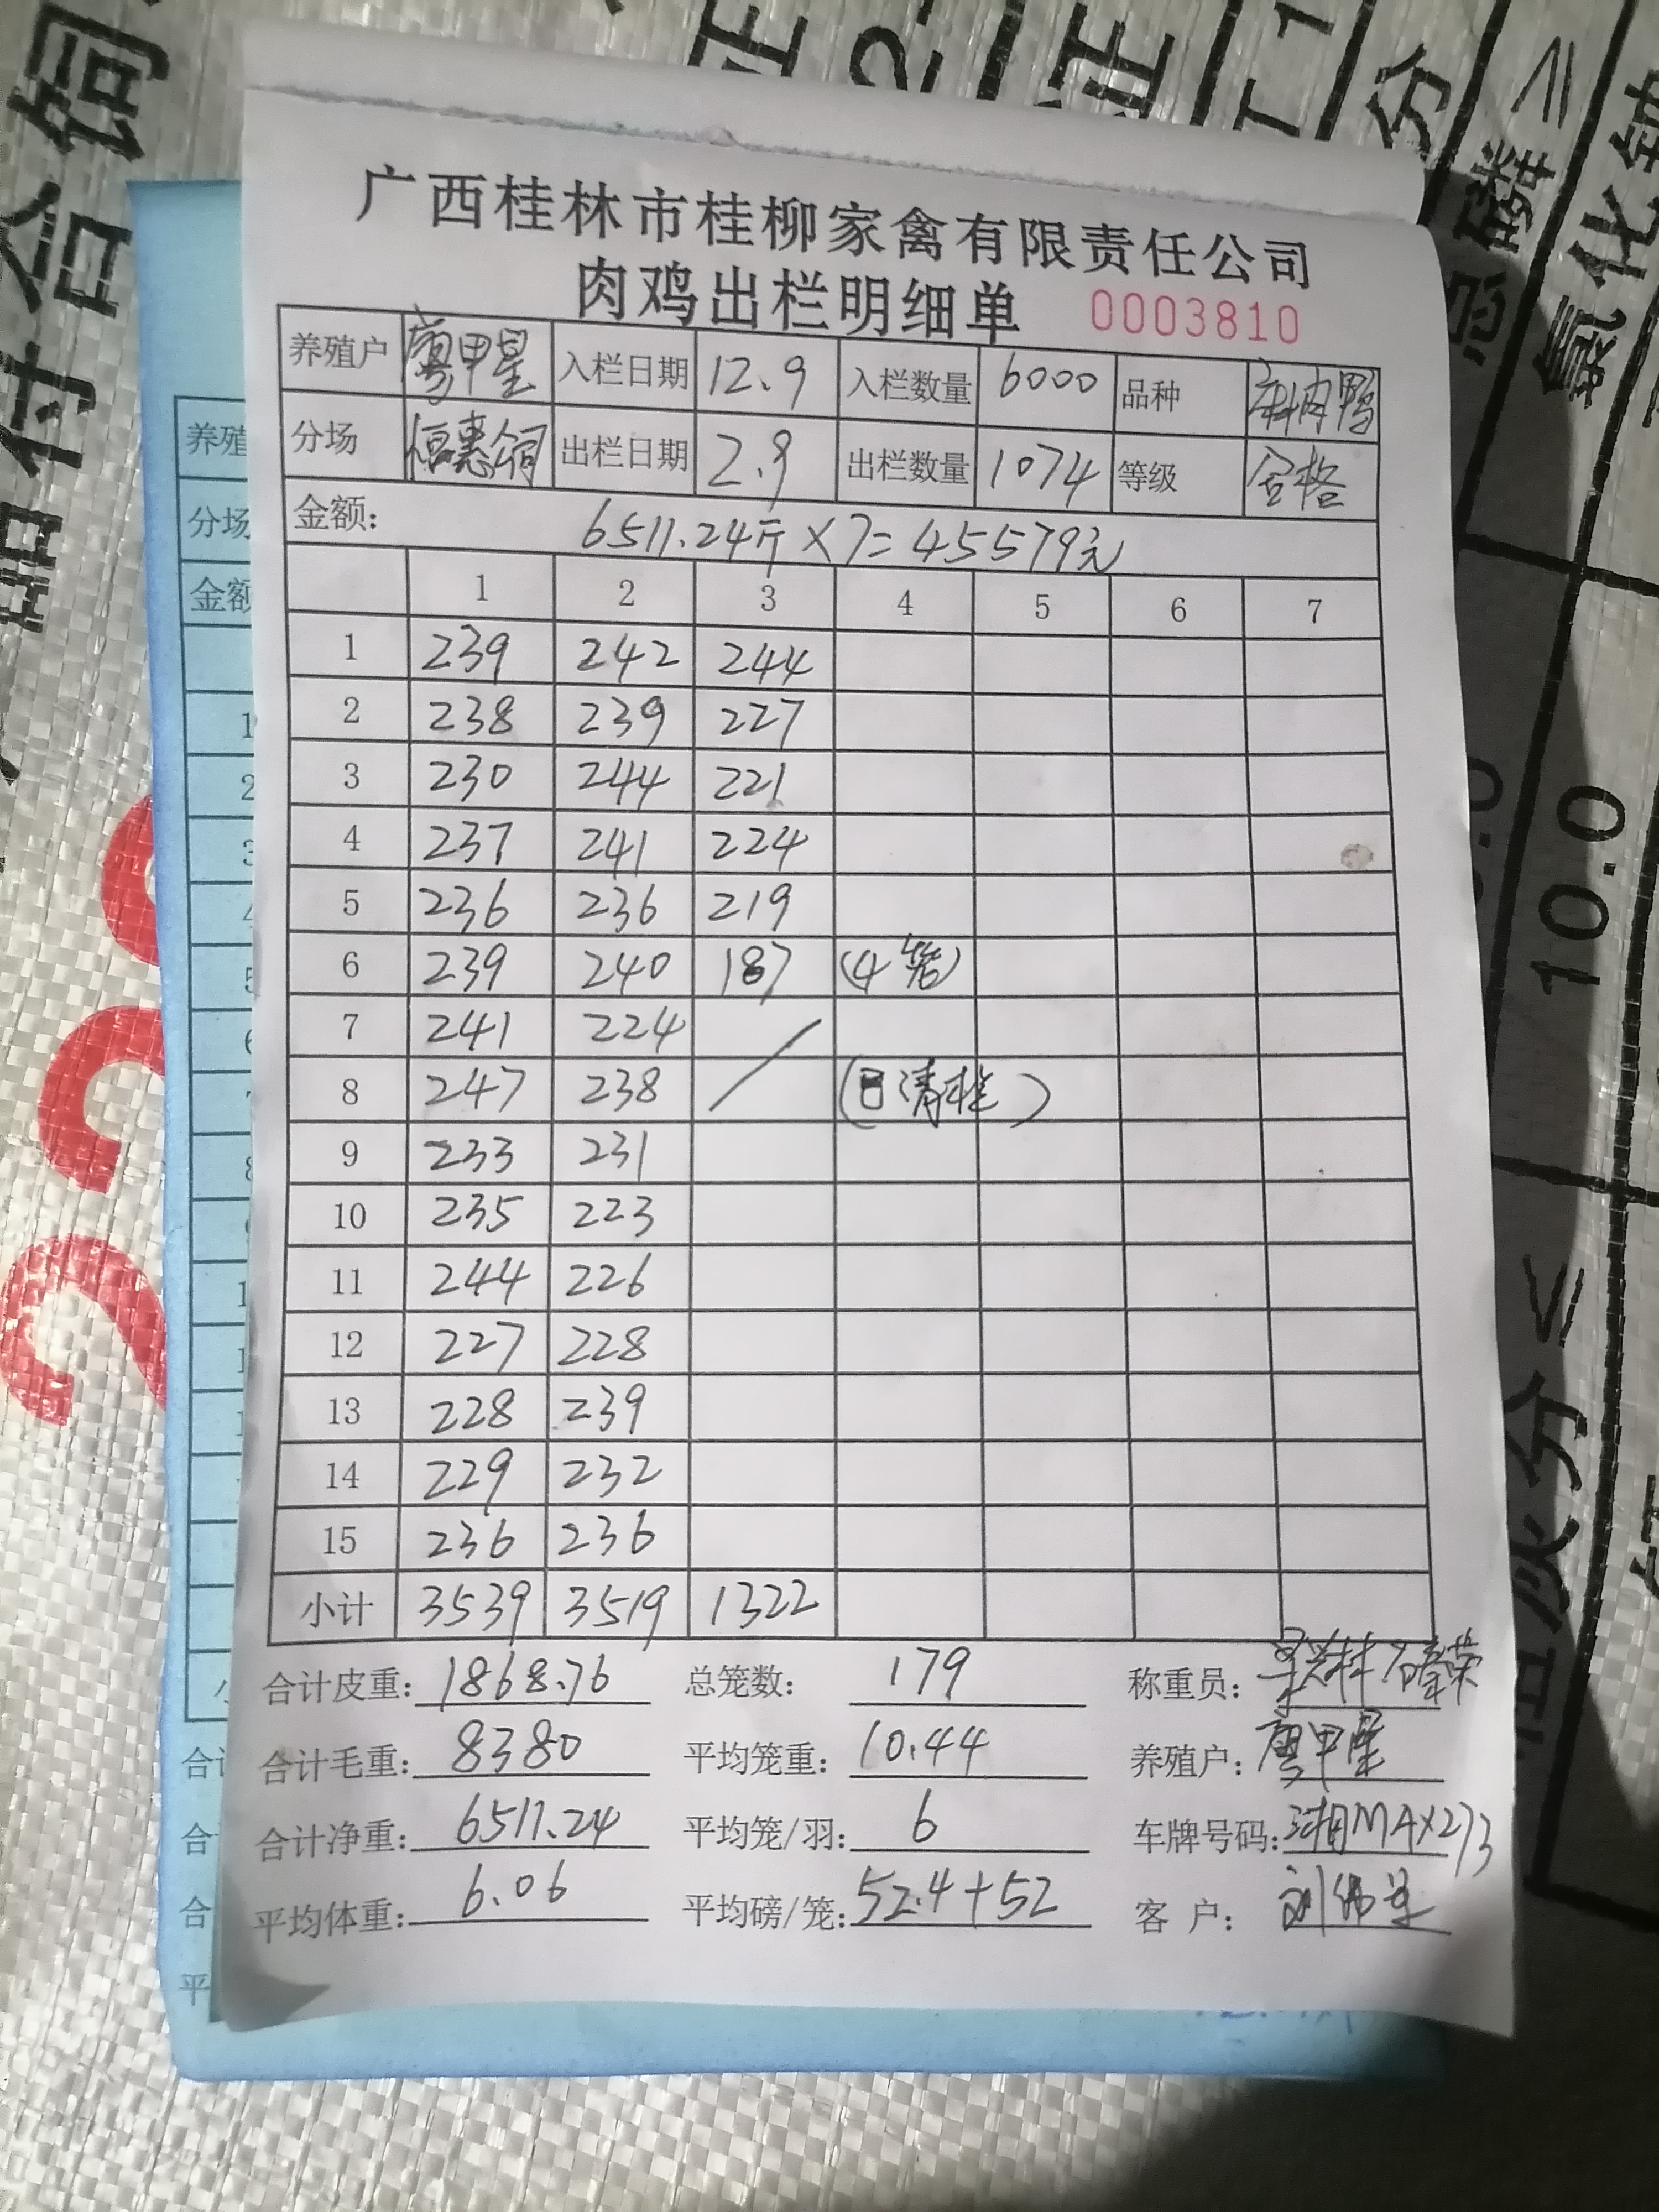 广西桂林市桂柳家禽有限责任公司
肉鸡出栏明细单 0003810
养殖户 入栏日期 12.9 入栏数量 6000 品种
分场 出栏日期 2.9 出栏数量 1074 等级 合格
金额: 6511.24斤×7=45579元
1 2 3 4 5 6 7
1 239 242 244
2 238 239 227
3 230 244 221
4 237 241 224
5 236 236 219
6 239 240 187 (4笼)
7 241 224
8 247 238 (已清栏)
9 233 231
10 235 223
11 244 226
12 227 228
13 228 239
14 229 232
15 236 236
小计 3539 3519 1322
合计皮重: 1868.76 总笼数: 179 称重员:
合计毛重: 8380 平均笼重: 10.44 养殖户:
合计净重: 6511.24 平均笼/羽: 6 车牌号码: 湘MAX273
平均体重: 6.06 平均磅/笼: 52.4+52 客户:
养殖
分场
金额
10.0